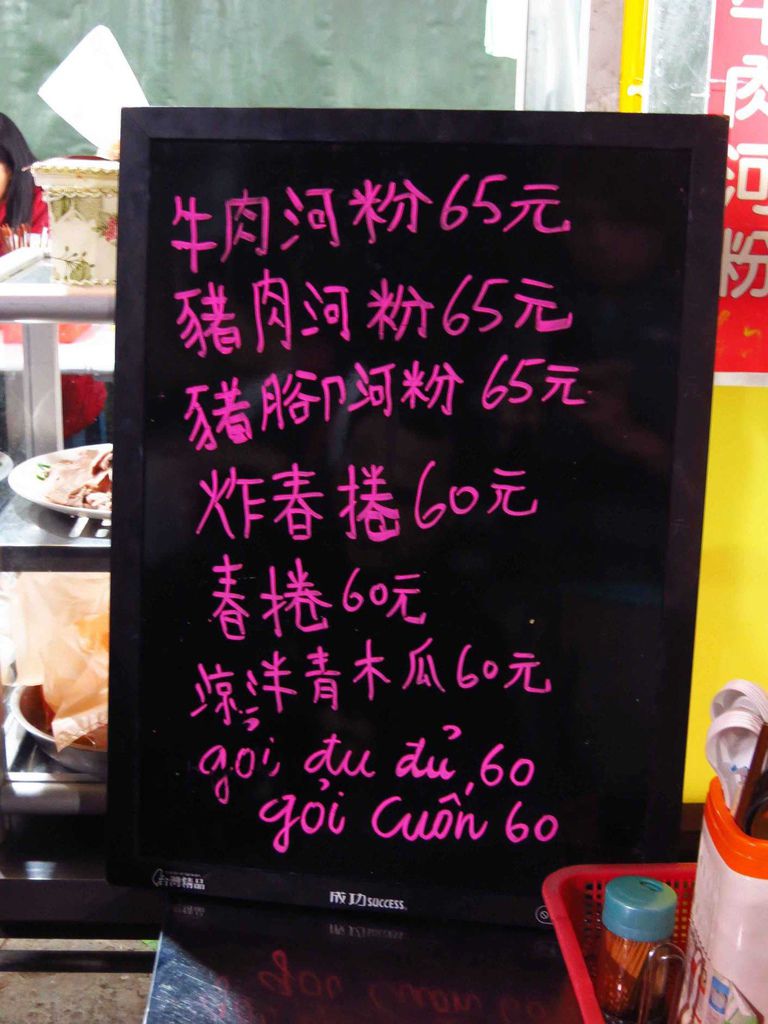 牛肉河粉65元
豬肉河粉65元
豬腳河粉65元
炸春捲60元
春捲60元
涼洋青木瓜60元
gỏi, đu đủ, 60
gỏi cuốn 60
台灣精品
成功SUCCESS
牛肉河粉